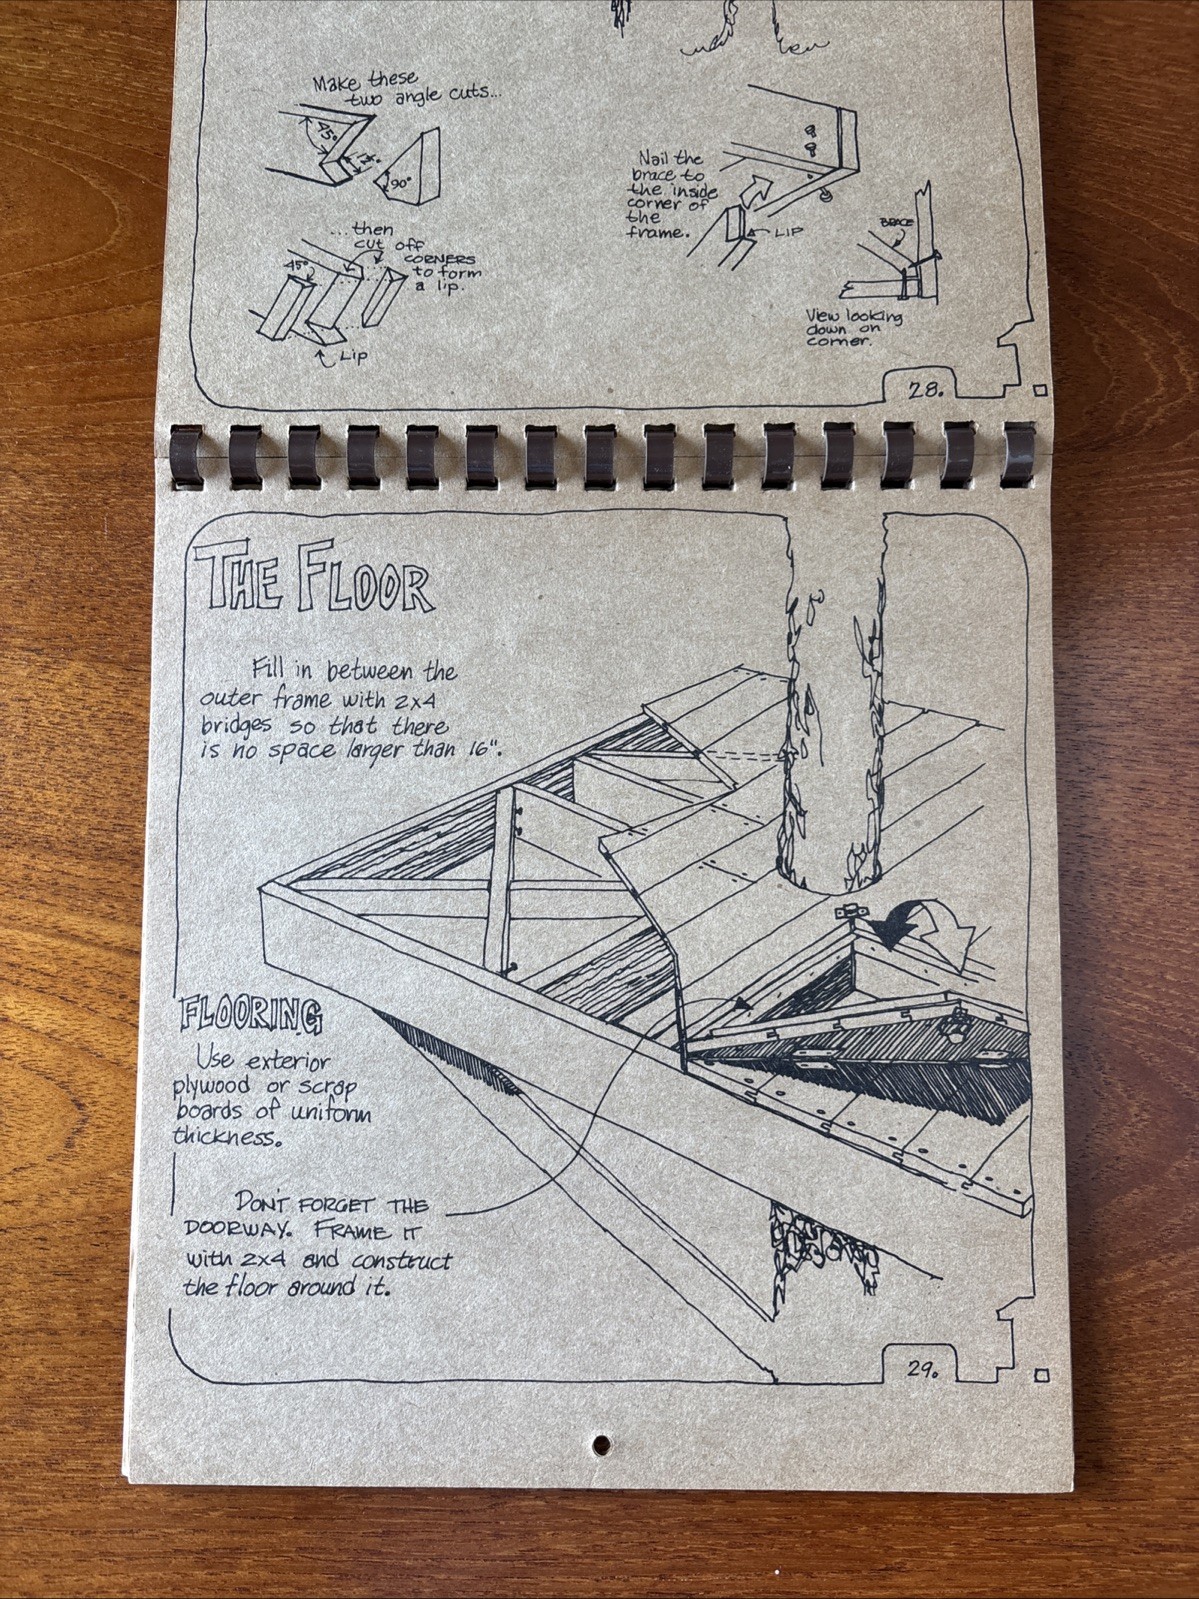 Make these
two angle cuts...
45°
90°
...then
cut off
CORNERS
to form
a lip.
45°
Lip
Nail the
brace to
the inside
corner of
the
frame.
LIP
BRACE
View looking
down on
corner.
28.
THE FLOOR
Fill in between the
outer frame with 2x4
bridges so that there
is no space larger than 16".
FLOORING
Use exterior
plywood or scrap
boards of uniform
thickness.
DON'T FORGET THE
DOORWAY. FRAME IT
with 2x4 and construct
the floor around it.
29.